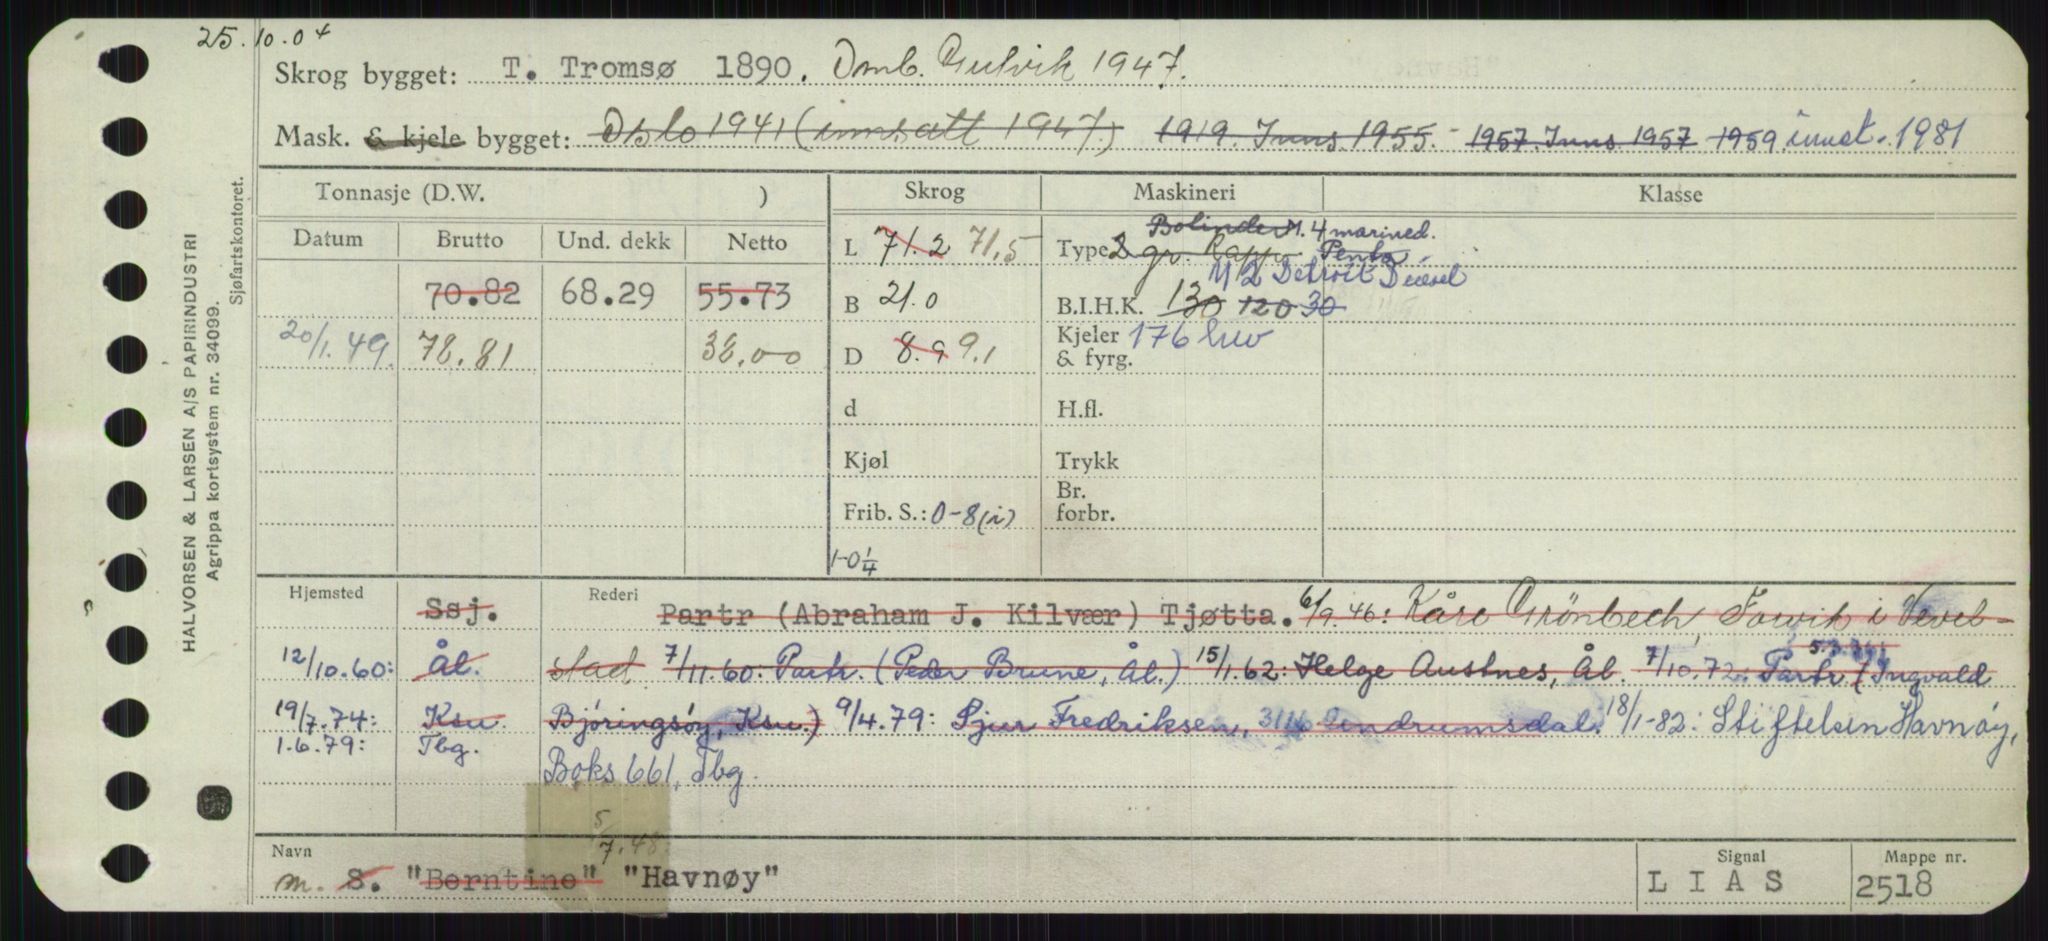 25.10.04
Skrog bygget: T. Tromsø 1890. Omb. Gulvik 1947.
Mask. & kjele bygget: Oslo 1941 (innsatt 1947) 1919. Inns. 1955. - 1957. Inns 1957 1959 innst. 1981
Tonnasje (D.W. ) Skrog Maskineri Klasse
Datum Brutto Und. dekk Netto L 71.2 71,5 Type 2 gv. Rapp Bolinder M. 4 marined. Penta
M 2 Detroit Diesel
70.82 68.29 55.73 B 21.0 B.I.H.K. 130 120 30
20/1.49. 78.81 38.00 D 8.9 9.1 Kjeler & fyrg. 176 hw
d H.fl.
Kjøl Trykk
Frib. S.: 0-8(i) Br. forbr.
1-0 1/4
Hjemsted Ssj. Rederi Partr (Abraham J. Kilvær) Tjøtta. 6/9.46: Kåre Grönbech Forvik i Vevel-
12/10.60: Ål. stad 7/11.60: Partr. (Peder Brune, Ål.) 15/1.62: Helge Austnes, Ål. 7/10.72: Partr (Ingvald
19/7.74: Ksu. Bjøringsøy, Ksu.) 9/4.79: Sjur Fredriksen, 3116 18/1-82: Stiftelsen Havnøy,
1.6.79: Tbg. Boks 661, Tbg.
5/7.48
Navn Signal Mappe nr.
m. S. "Berntine" "Havnøy" LIAS 2518
HALVORSEN & LARSEN A/S PAPIRINDUSTRI
Agrippa kortsystem nr. 34099.
Sjøfartskontoret.